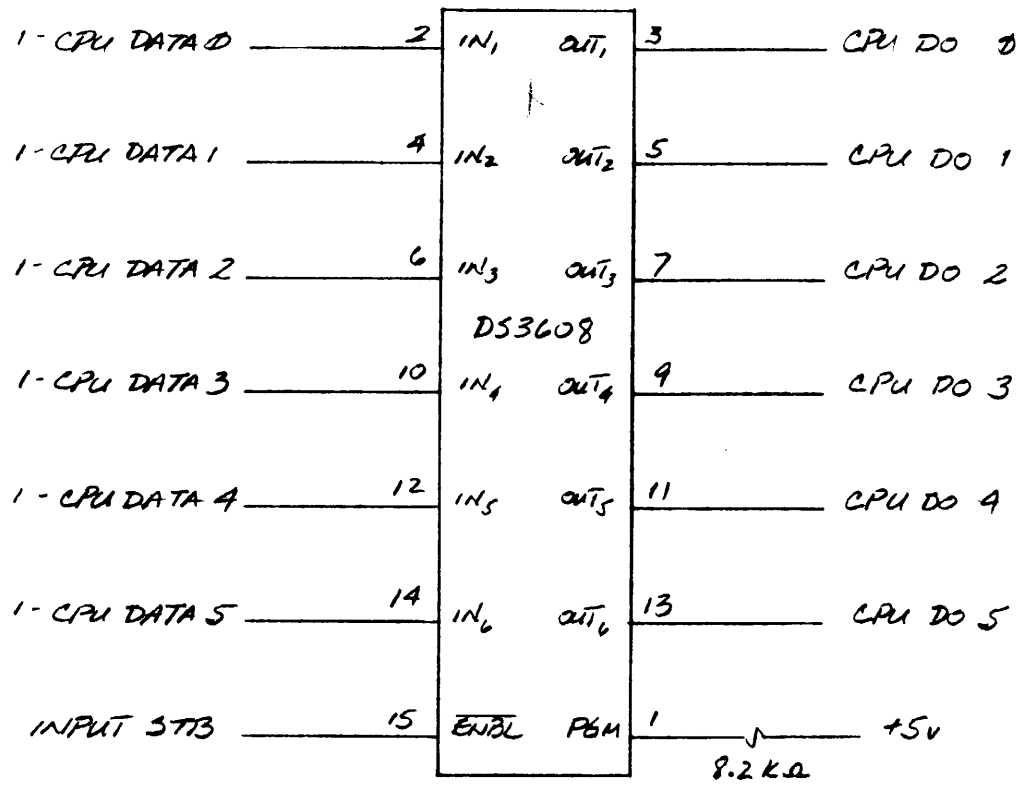 1-CPU DATA 0 2 IN1 OUT1 3 CPU DO 0
1-CPU DATA 1 4 IN2 OUT2 5 CPU DO 1
1-CPU DATA 2 6 IN3 OUT3 7 CPU DO 2
DS3608
1-CPU DATA 3 10 IN4 OUT4 9 CPU DO 3
1-CPU DATA 4 12 IN5 OUT5 11 CPU DO 4
1-CPU DATA 5 14 IN6 OUT6 13 CPU DO 5
INPUT STB 15 ENBL PGM 1 +5v
8.2 KΩ